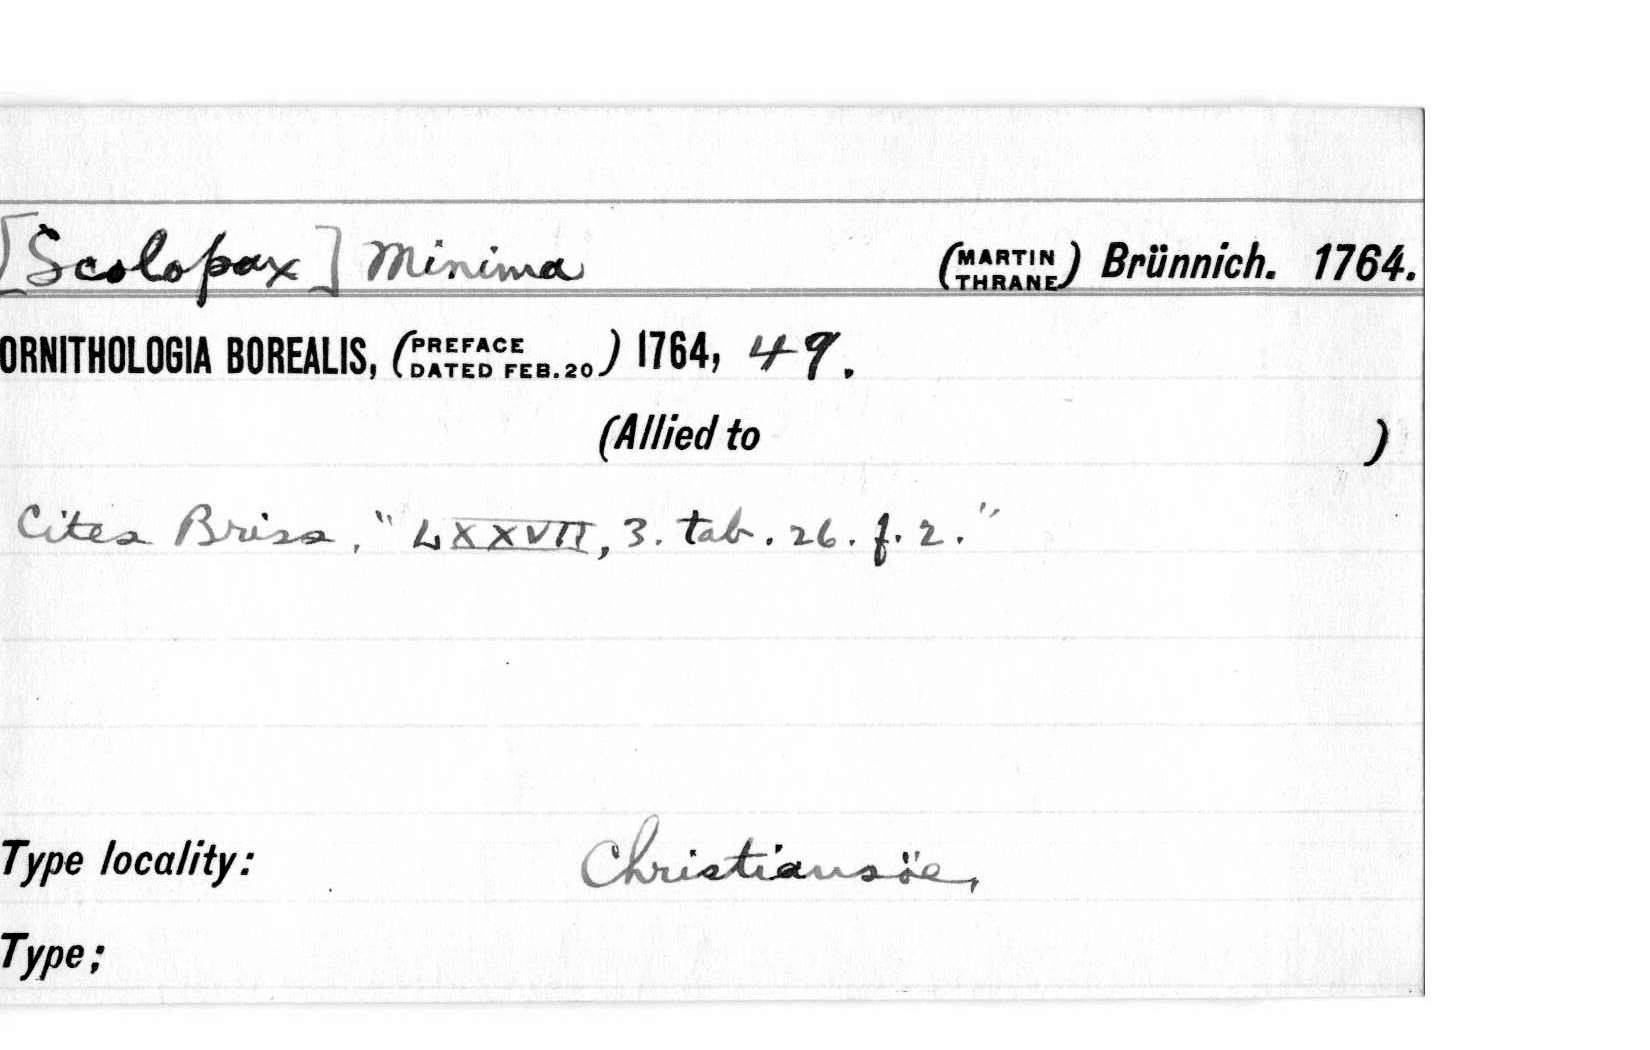 [Scolopax] Minima (MARTIN THRANE) Brünnich. 1764.
ORNITHOLOGIA BOREALIS, (PREFACE DATED FEB. 20) 1764, 49.
(Allied to )
Cites Briss, "LXXVII, 3. tab. 26. f. 2."
Type locality: Christiansöe,
Type;